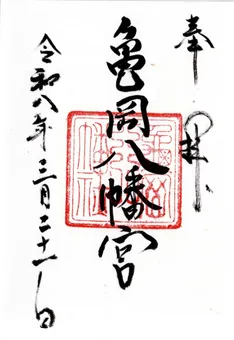 奉拝
亀岡八幡宮
令和八年三月二十一日